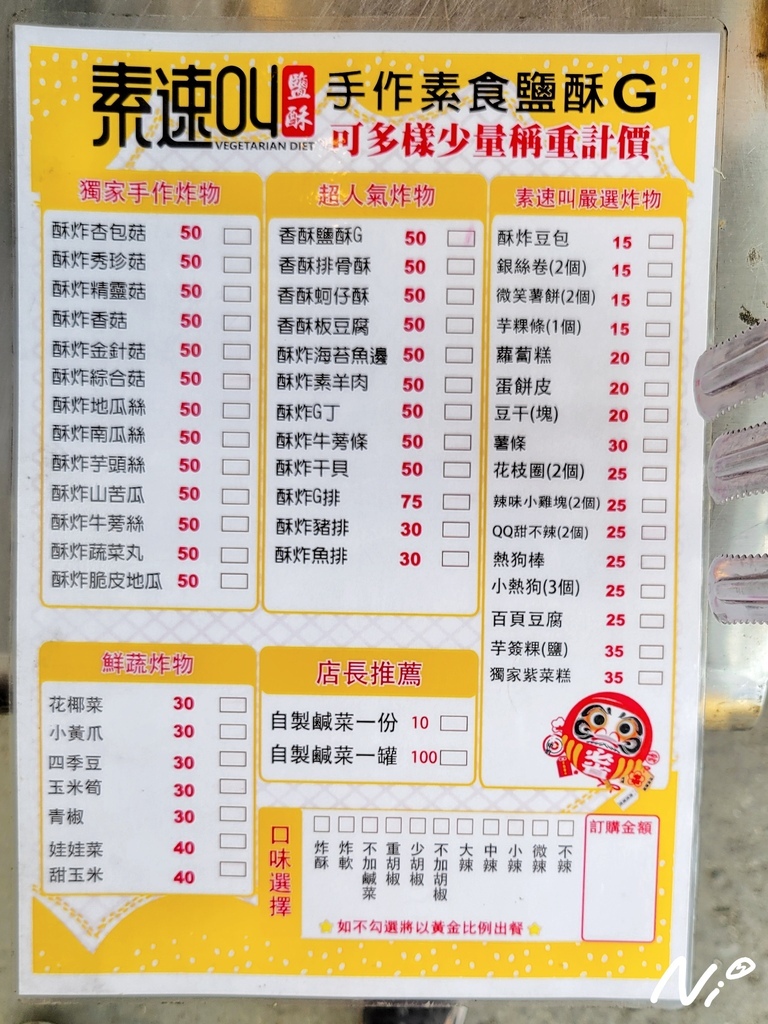 素速叫 鹽酥 手作素食鹽酥G
VEGETARIAN DIET 可多樣少量稱重計價
獨家手作炸物
酥炸杏包菇 50
酥炸秀珍菇 50
酥炸精靈菇 50
酥炸香菇 50
酥炸金針菇 50
酥炸綜合菇 50
酥炸地瓜絲 50
酥炸南瓜絲 50
酥炸芋頭絲 50
酥炸山苦瓜 50
酥炸牛蒡絲 50
酥炸蔬菜丸 50
酥炸脆皮地瓜 50
超人氣炸物
香酥鹽酥G 50
香酥排骨酥 50
香酥蚵仔酥 50
香酥板豆腐 50
酥炸海苔魚邊 50
酥炸素羊肉 50
酥炸G丁 50
酥炸牛蒡條 50
酥炸干貝 50
酥炸G排 75
酥炸豬排 30
酥炸魚排 30
素速叫嚴選炸物
酥炸豆包 15
銀絲卷(2個) 15
微笑薯餅(2個) 15
芋粿條(1個) 15
蘿蔔糕 20
蛋餅皮 20
豆干(塊) 20
薯條 30
花枝圈(2個) 25
辣味小雞塊(2個) 25
QQ甜不辣(2個) 25
熱狗棒 25
小熱狗(3個) 25
百頁豆腐 25
芋簽粿(鹽) 35
獨家紫菜糕 35
鮮蔬炸物
花椰菜 30
小黃爪 30
四季豆 30
玉米筍 30
青椒 30
娃娃菜 40
甜玉米 40
店長推薦
自製鹹菜一份 10
自製鹹菜一罐 100
口味選擇
炸酥
炸軟
不加鹹菜
重胡椒
少胡椒
不加胡椒
大辣
中辣
小辣
微辣
不辣
如不勾選將以黃金比例出餐
訂購金額
Ni